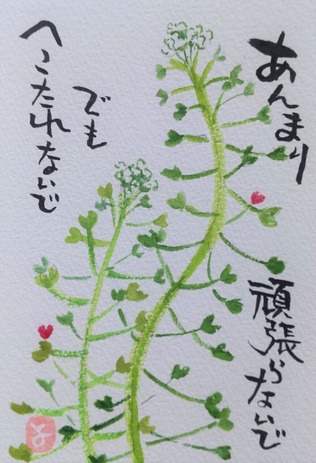 あんまり
頑張らないで
でも
へこたれないで